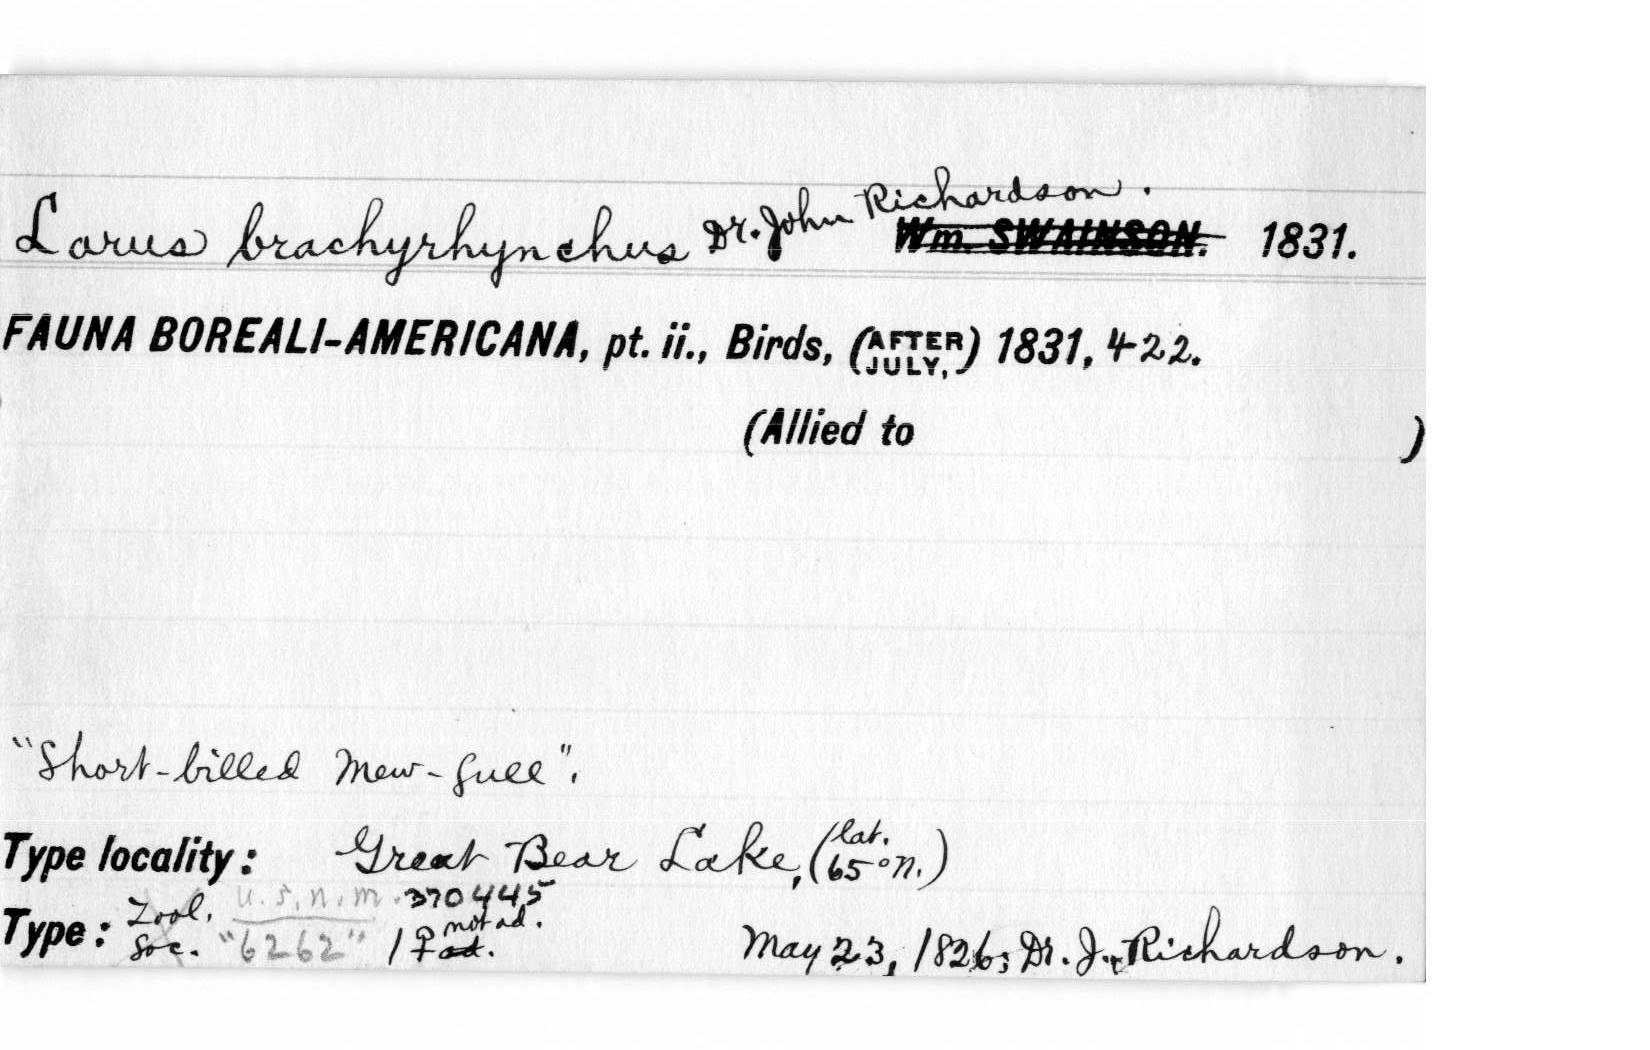 Larus brachyrhynchus Dr. John Richardson. Wm. SWAINSON. 1831.
FAUNA BOREALI-AMERICANA, pt. ii., Birds, (AFTER JULY,) 1831, 422.
(Allied to )
"Short-billed Mew-Gull".
Type locality: Great Bear Lake, (lat. 65° N.)
Type: Zool. Soc. U.S.N.M. 370445 "6262" 1 ♀ ad. not ad. May 23, 1826; Dr. J. Richardson.